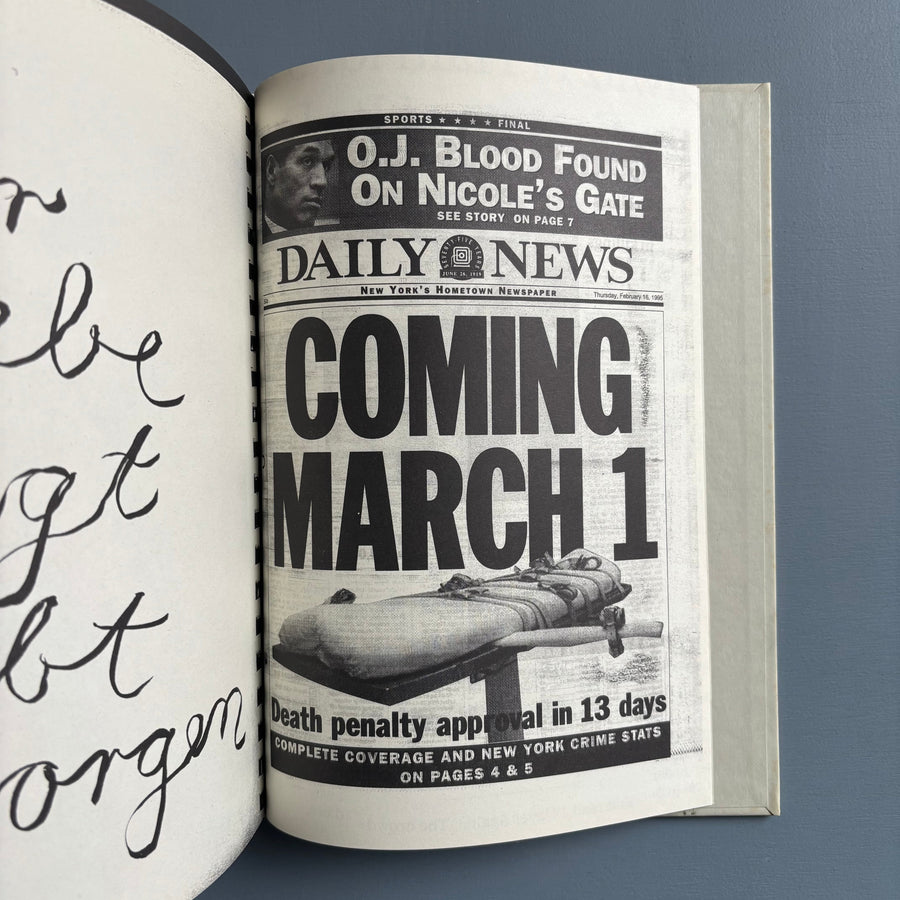 n
ebe
gt
bt
orgen
SPORTS ★ ★ ★ ★ FINAL
O.J. BLOOD FOUND
ON NICOLE'S GATE
SEE STORY ON PAGE 7
DAILY NEWS
SEVENTY-FIVE YEARS
JUNE 26, 1919
NEW YORK'S HOMETOWN NEWSPAPER
Thursday, February 16, 1995
COMING
MARCH 1
Death penalty approval in 13 days
COMPLETE COVERAGE AND NEW YORK CRIME STATS
ON PAGES 4 & 5